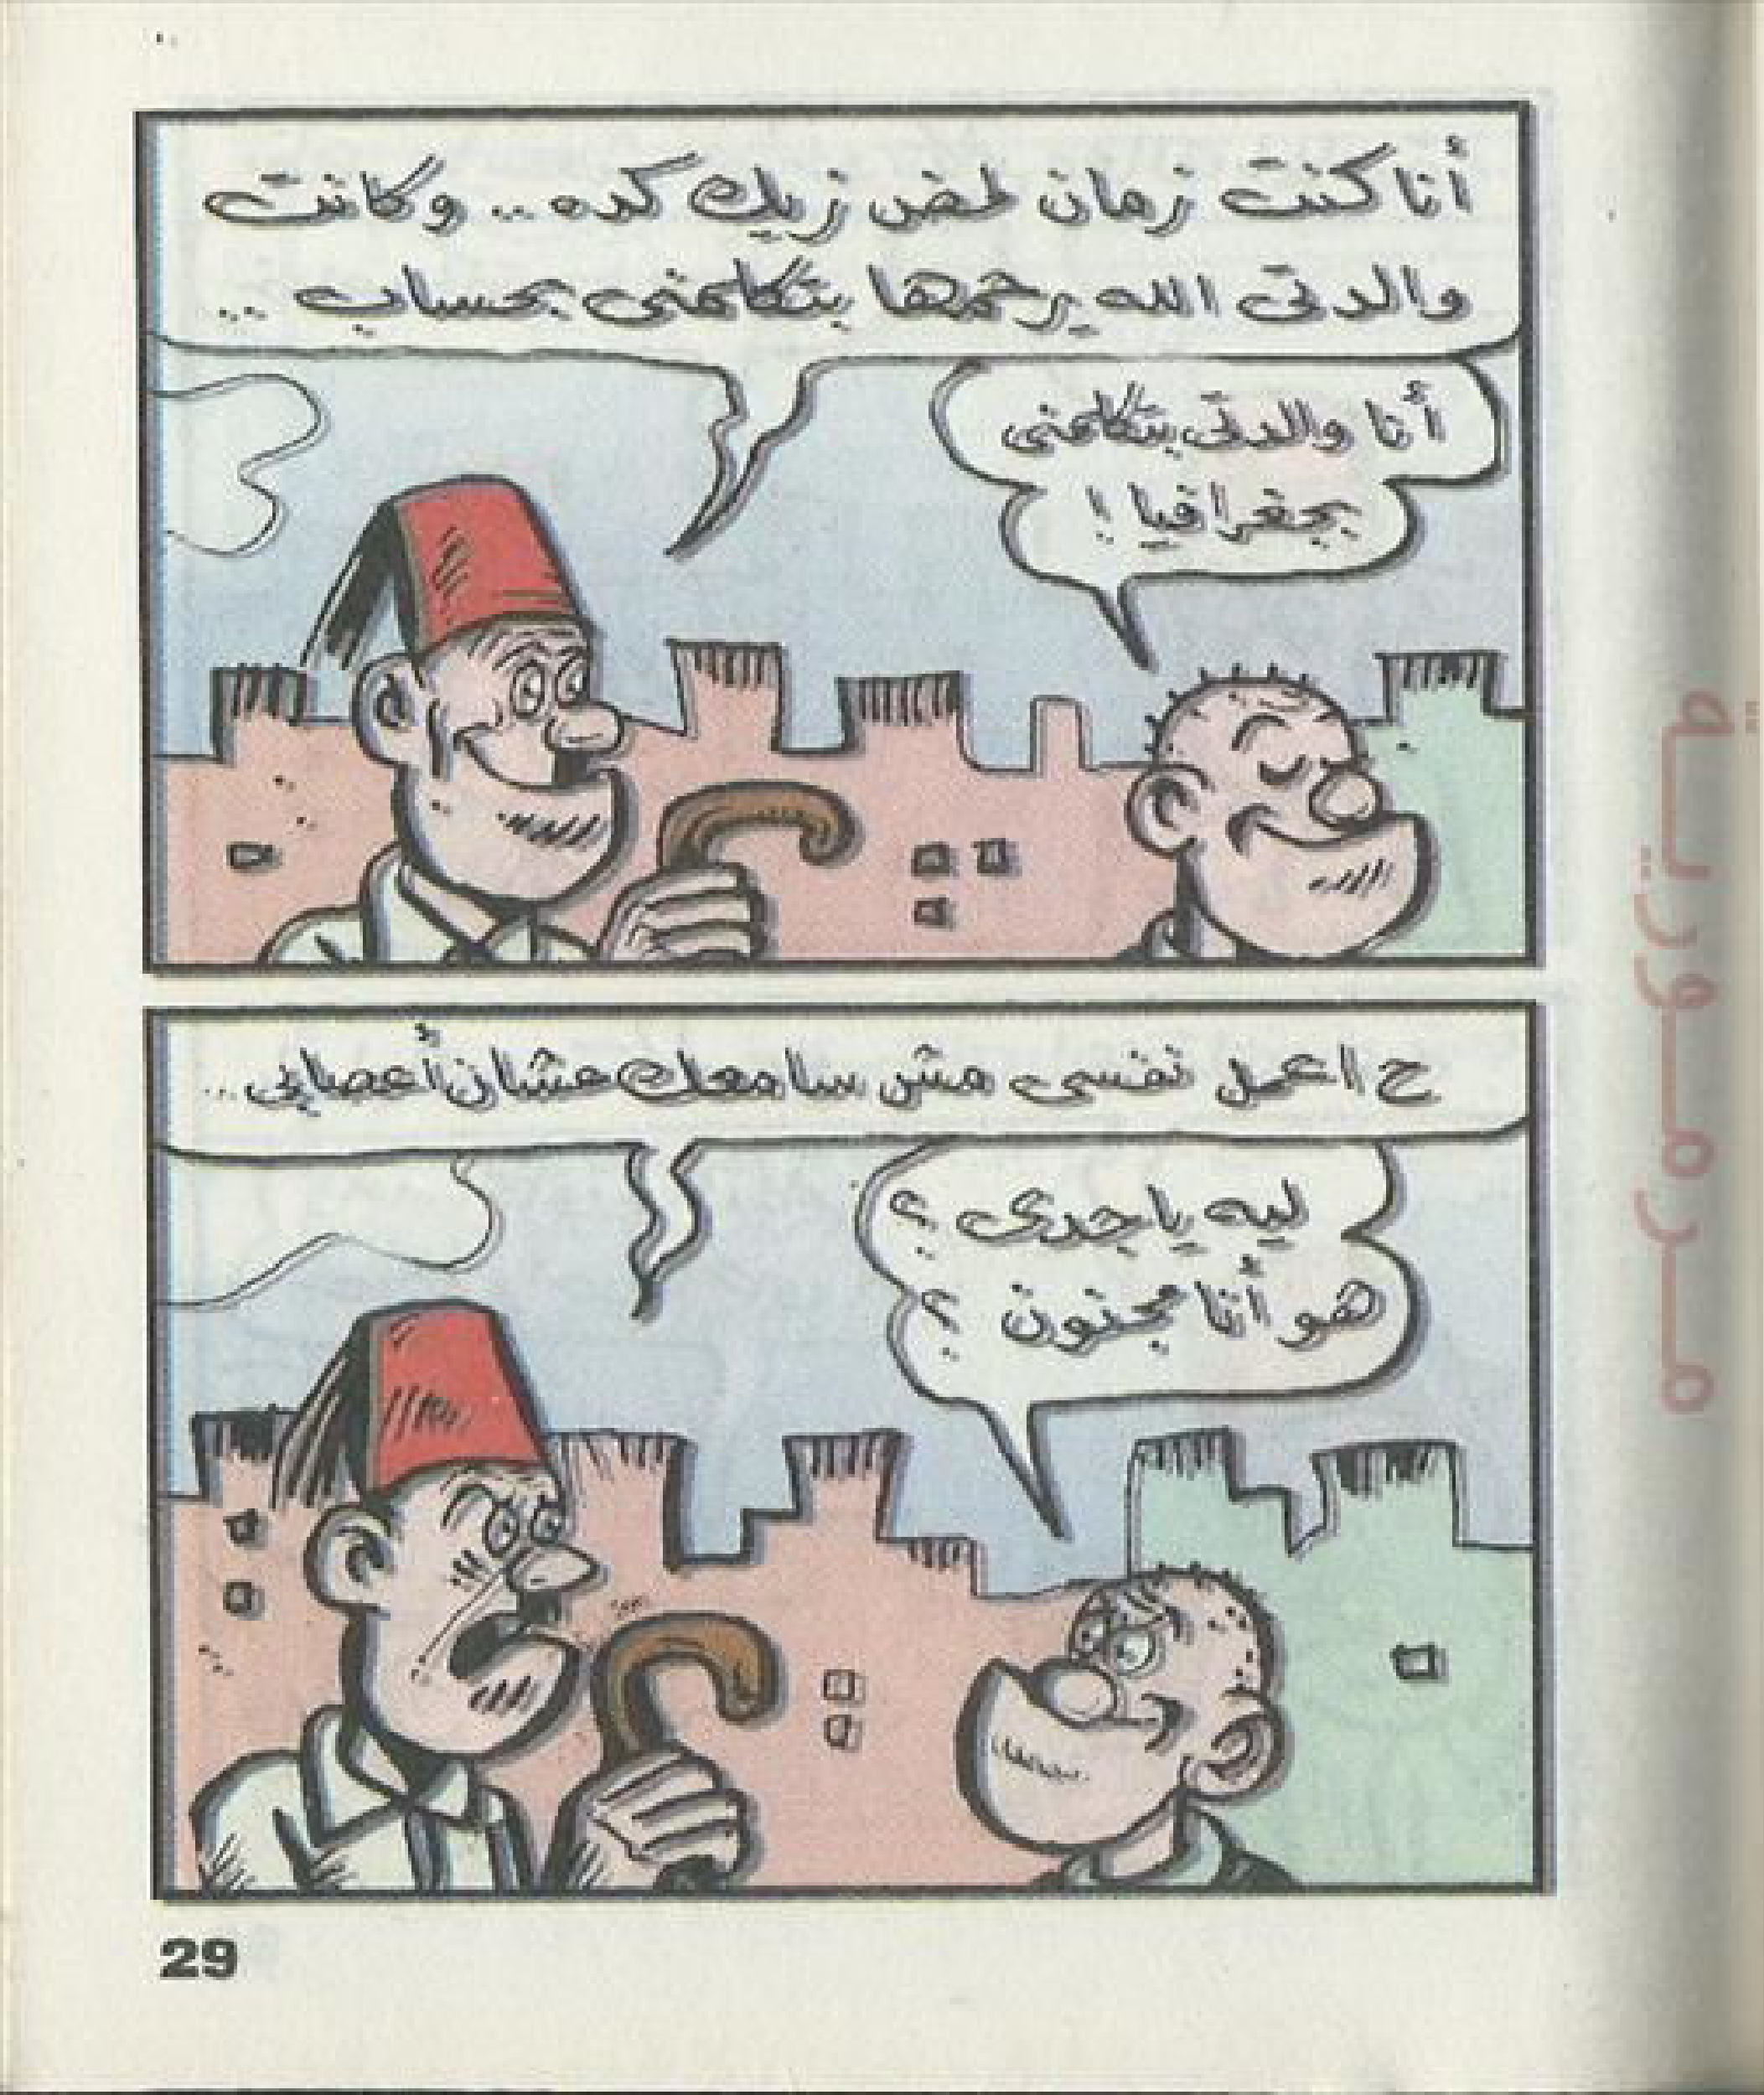 أنا كنت زمان لمض زيك كده .. وكانت
والدتى الله يرحمها بتكلمنى بحساب ...
أنا والدتى بتكلمنى
بجغرافيا !
ح اعمل نفسى مش سامعك عشان أعصابى ..
ليه يا جدى ؟
هو أنا مجنون ؟
29
مرمورية